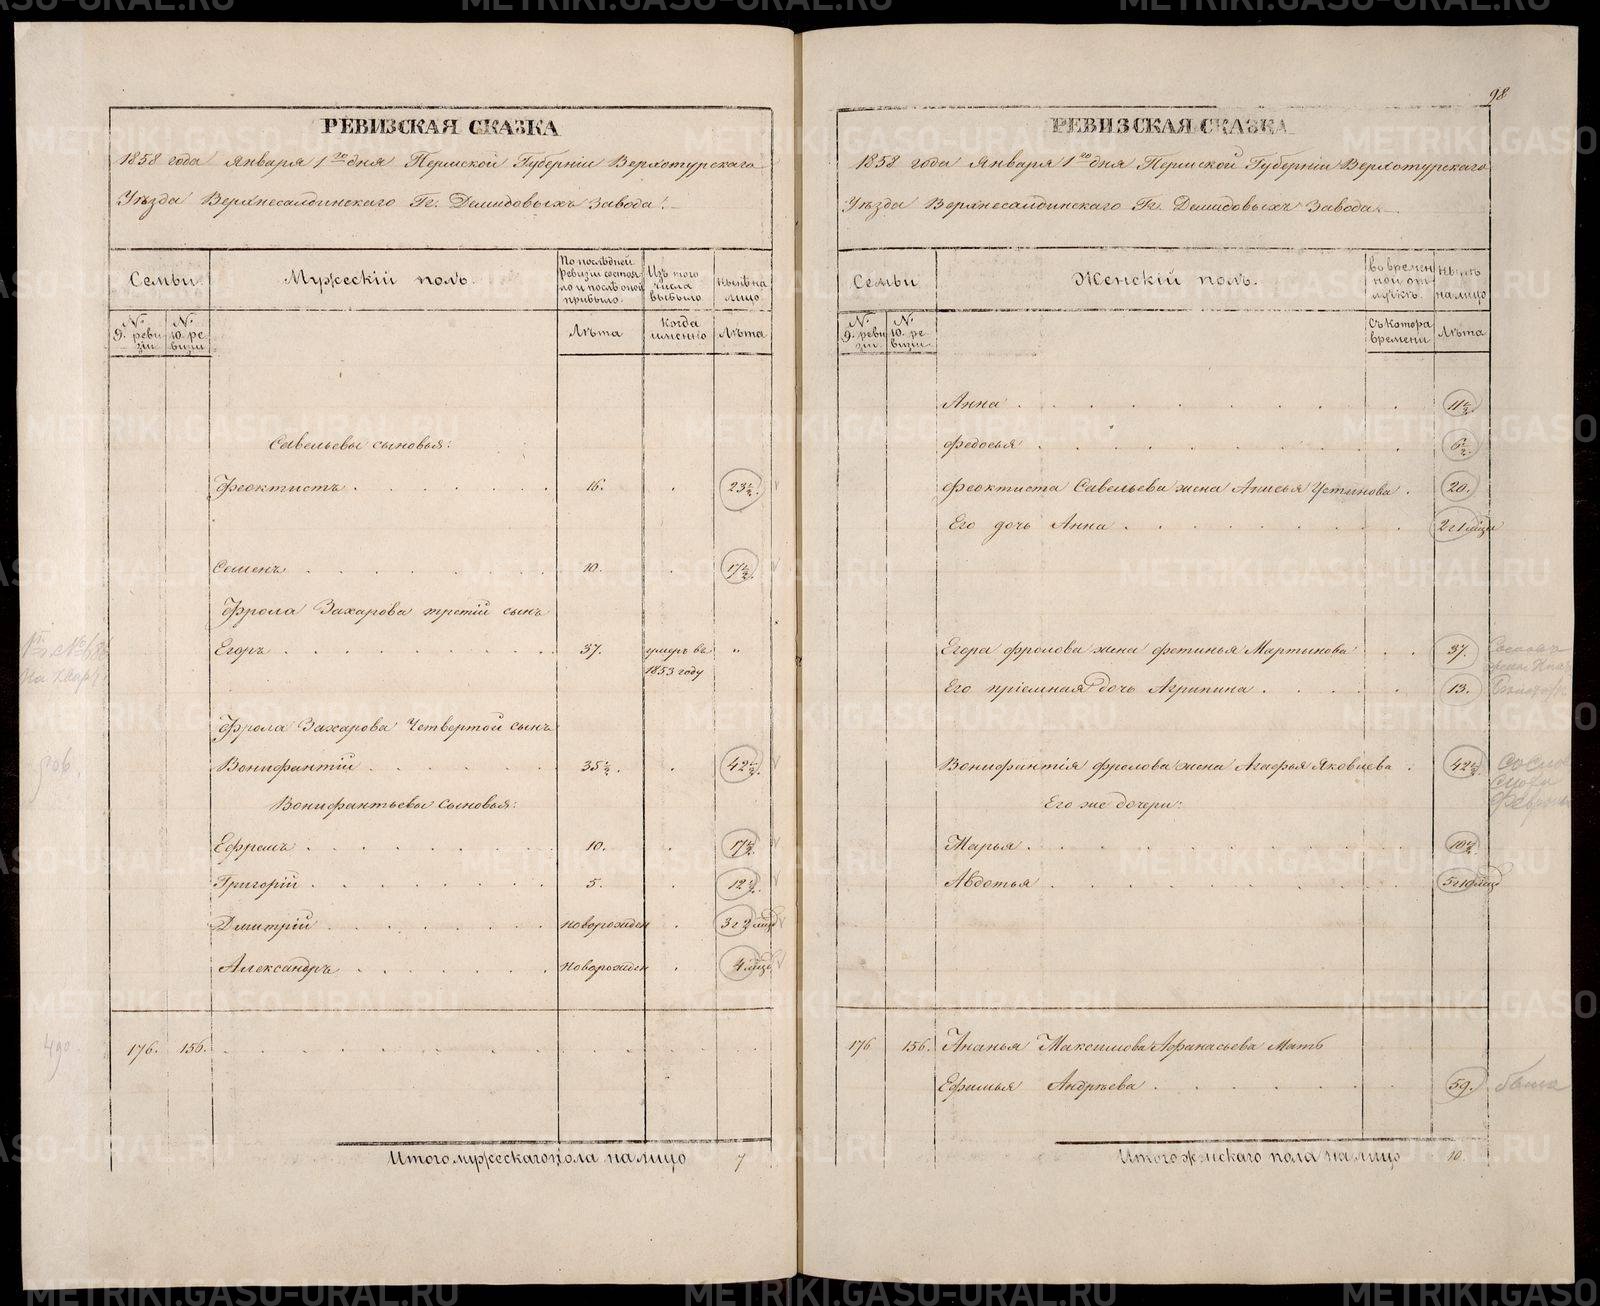 РЕВИЗСКАЯ СКАЗКА
1858 года Января 1го дня Пермской Губерніи Верхотурскаго
Уѣзда Верхнесалдинскаго Гг. Демидовыхъ Завода.
Семьи
Мужескій полъ.
По послѣдней ревизіи состояло и послѣ оной прибыло.
Изъ того числа выбыло
Нынѣ на лицо
№ 9. ревизіи
№ 10. ревизіи
Лѣта
Когда именно
Лѣта
Савельевы сыновья:
Феоктистъ 16. 23½.
Семенъ 10. 17½.
Фрола Захарова третій сынъ
Егоръ 37. умеръ въ 1853 году „
Фрола Захарова Четвертой сынъ
Вонифантій 35½. 42½.
Вонифантьевы сыновья:
Ефремъ 10. 17½.
Григорій 5. 12½.
Дмитрій новорожден 3 г 2 мѣц
Александръ новорожден 4 мѣц
490.
176. 156.
Итого мужескаго пола на лицо 7
98
РЕВИЗСКАЯ СКАЗКА
1858 года Января 1го дня Пермской Губерніи Верхотурскаго
Уѣзда Верхнесалдинскаго Гг. Демидовыхъ Завода.
Семьи
Женскій полъ.
во временной отлучкѣ.
Нынѣ на лицо
№ 9. ревизіи
№ 10. ревизіи
Съ котора времени
Лѣта
Анна 11½
Федосья 6½.
Феоктиста Савельева жена Анисья Устинова 20.
Его дочь Анна 2 г 1 мѣц
Егора Фролова жена Фетинья Мартынова 37.
Его пріемная дочь Агрипина 13.
Вонифантія Фролова жена Агафья Яковлева 42½.
Его же дочери:
Марья 10½.
Авдотья 5 г 10 мѣц
176 156. Ананья Максимова Афанасьева Мать
Ефимья Андрѣева 59.
Итого женскаго пола на лицо 10.
METRIKI.GASO-URAL.RU